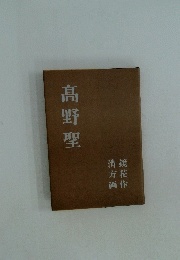 髙野聖
鏡花作
清方画